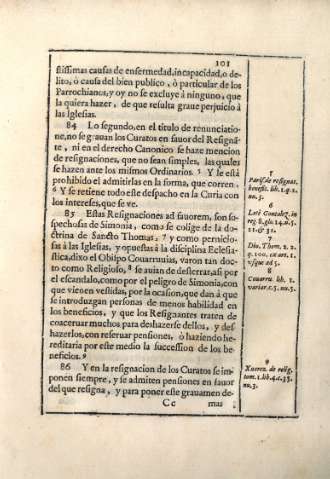 101
stissimas causas de enfermedad, incapacidad, o de-
lito, ò causa del bien publico, ò particular de los
Parrochianos, y oy no se excluye à ninguno, que
la quiera hazer, de que resulta graue perjuicio à
las Iglesias.
84 Lo segundo, en el titulo de renunciatio-
ne, no se grauan los Curatos en fauor del Resigna-
te, ni en el derecho Canonico se haze mencion
de resignaciones, que no sean simples, las quales
se hazen ante los mismos Ordinarios. 5 Y le està
prohibido el admitirlas en la forma, que corren.
6 Y se retiene todo este despacho en la Curia con
los intereses, que se ve.
85 Estas Resignaciones ad fauorem, son so-
spechosas de Simonia, como se colige de la do-
ctrina de Sancto Thomas: 7 y como pernicio-
sas à las Iglesias, y opuestas à la disciplina Eclesia-
stica, dixo el Obispo Couarruuias, varon tan do-
cto como Religioso, 8 se auian de desterrar, asi por
el escandalo, como por el peligro de Simonia, con
que vienen vestidas, por la ocasion, que dan à que
se introduzgan personas de menos habilidad en
los beneficios, y que los Resignantes traten de
coaceruar muchos para deshazerse dellos, y des-
hazerlos, con reseruar pensiones, ò haziendo he-
reditaria por este medio la succession de los be-
neficios. 9
86 Y en la resignacion de los Curatos se im-
ponen siempre, y se admiten pensiones en fauor
del que resigna, y para poner este grauamen de-
Cc mas
5
Paris. de resignat.
benefit. lib. 1. q. 2.
nu. 5.
6
Late Gonzalez, in
reg. 8. glo. 14. n. 5.
21. & 31.
7
Diu. Thom. 2. 2.
q. 100. ex art. 1.
vsque ad 5.
8
Couarru. lib. 1.
variar. c. 5. nu. 5.
9
Xuarez. de relig.
tom. 1. lib. 4. c. 35.
nu. 3.